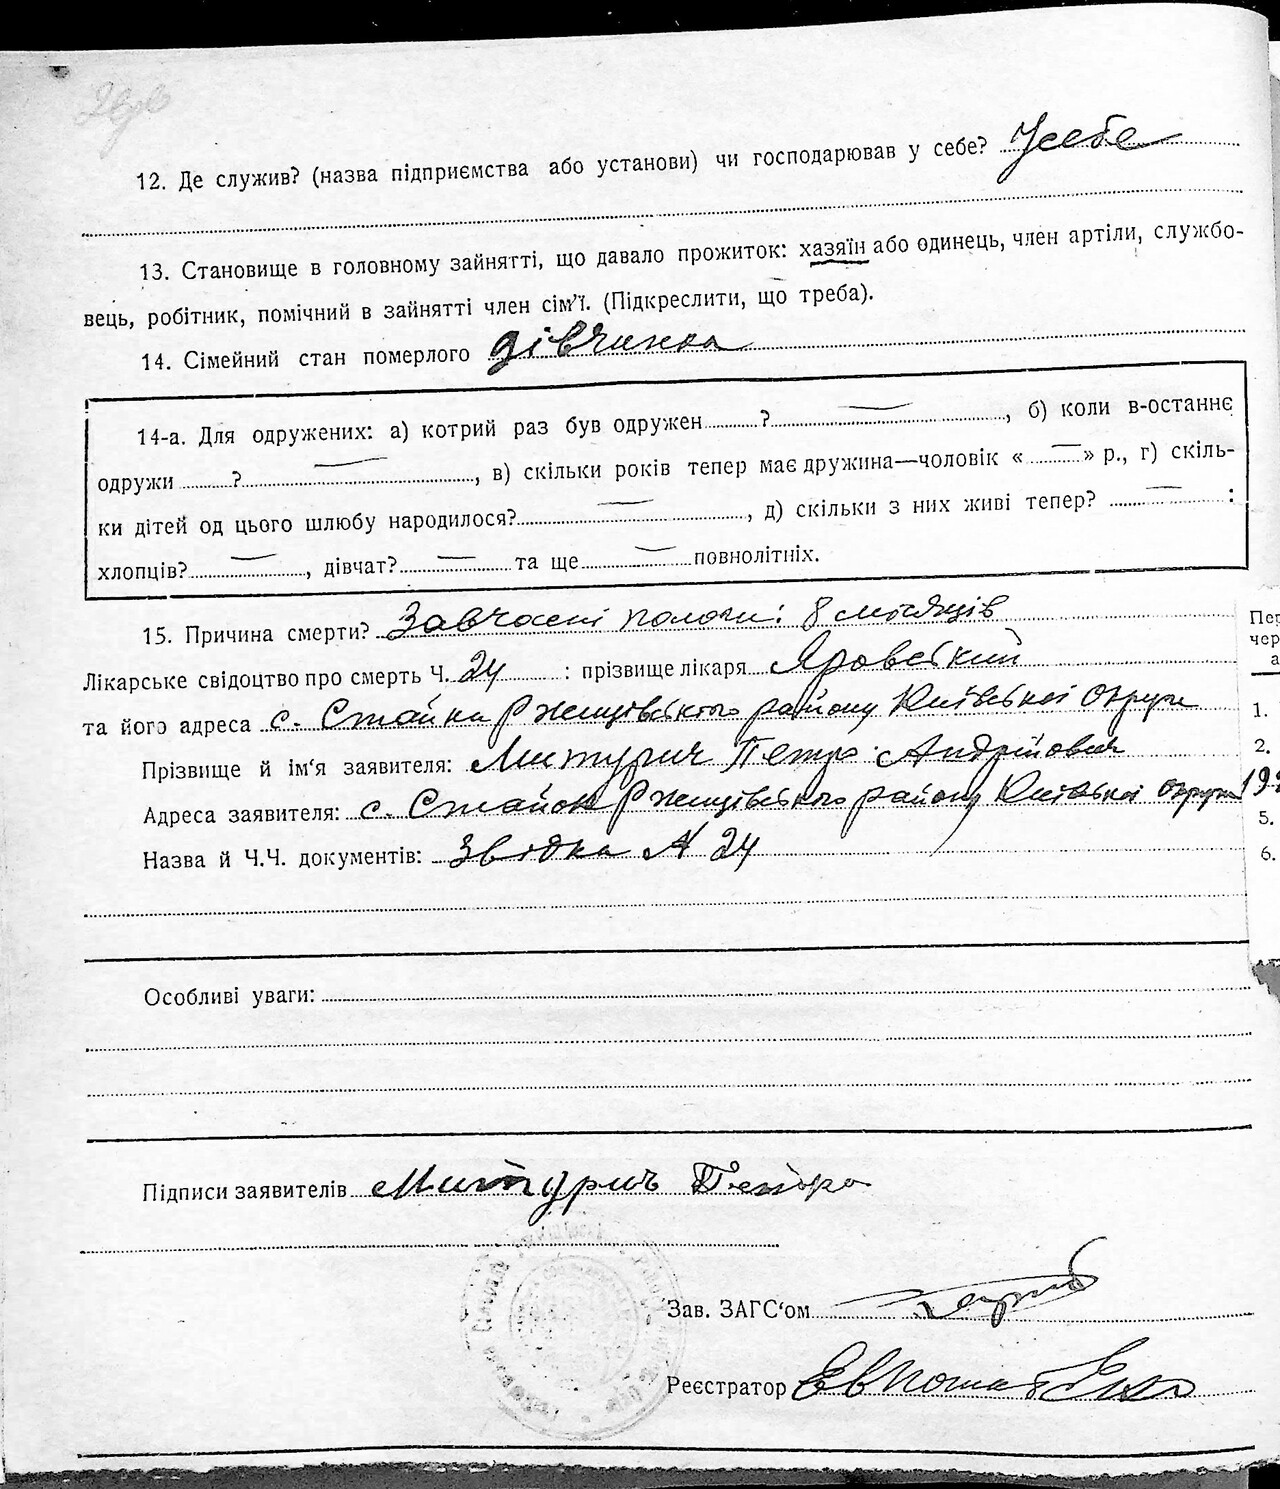 12. Де служив? (назва підприємства або установи) чи господарював у себе? У себе
13. Становище в головному зайнятті, що давало прожиток: хазяїн або одинець, член артіли, службо-
вець, робітник, помічний в зайнятті член сім'ї. (Підкреслити, що треба).
14. Сімейний стан померлого дівчинка
14-а. Для одружених: а) котрий раз був одружен ? —, б) коли в-останнє
одружи ? —, в) скільки років тепер має дружина—чоловік « — » р., г) скіль-
ки дітей од цього шлюбу народилося? —, д) скільки з них живі тепер? — :
хлопців? —, дівчат? — та ще — повнолітніх.
15. Причина смерти? Завчасні пологи: 8 місяців
Лікарське свідоцтво про смерть Ч. 24 : прізвище лікаря Яровский
та його адреса с. Стайки Ржищівського району Київської Округи
Прізвище й ім'я заявителя: Митурич Петро Андрійович
Адреса заявителя: с. Стайок Ржищівського району Київської округи
Назва й Ч.Ч. документів: Звідка № 24
Особливі уваги:
Підписи заявителів Митурич Петро
Зав. ЗАГС'ом
Реєстратор
Пер
чер
а
1.
2.
192
5.
6.